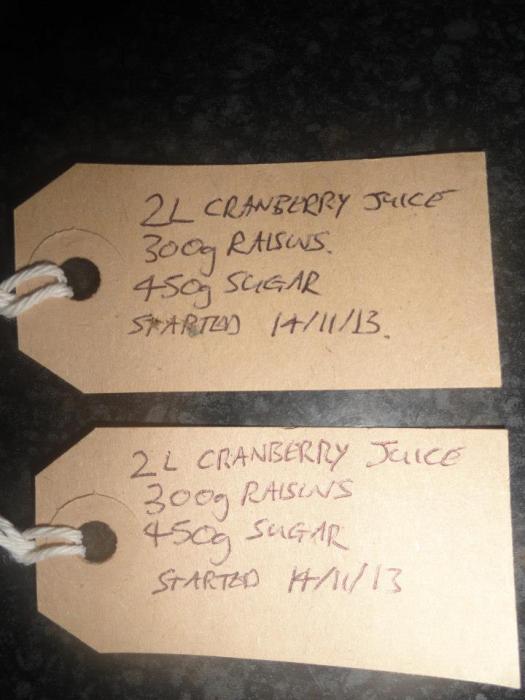 2L CRANBERRY JUICE
300g RAISINS.
450g SUGAR
STARTED 14/11/13.
2L CRANBERRY JUICE
300g RAISINS
450g SUGAR
STARTED 14/11/13